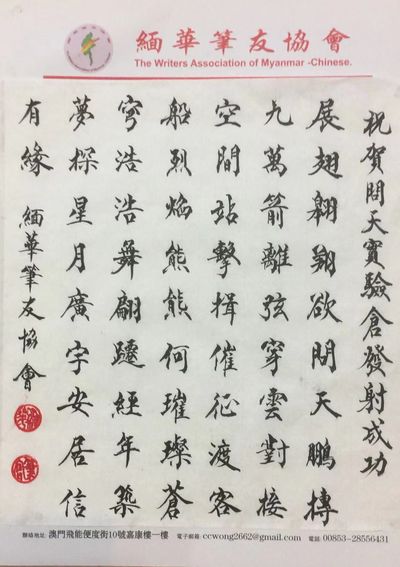 緬華筆友協會
The Writers Association of Myanmar -Chinese.
祝賀問天實驗倉發射成功
展翅翱翔欲問天鵬摶
九萬箭離弦穿雲對接
空間站擊揖催征渡客
船烈焰熊熊何璀璨蒼
穹浩浩舞翩躚經年築
夢探星月廣宇安居信
有緣 緬華筆友協會
聯絡地址: 澳門飛能便度街10號嘉康樓一樓 電子郵箱: ccwong2662@gmail.com 電話: 00853-28556431